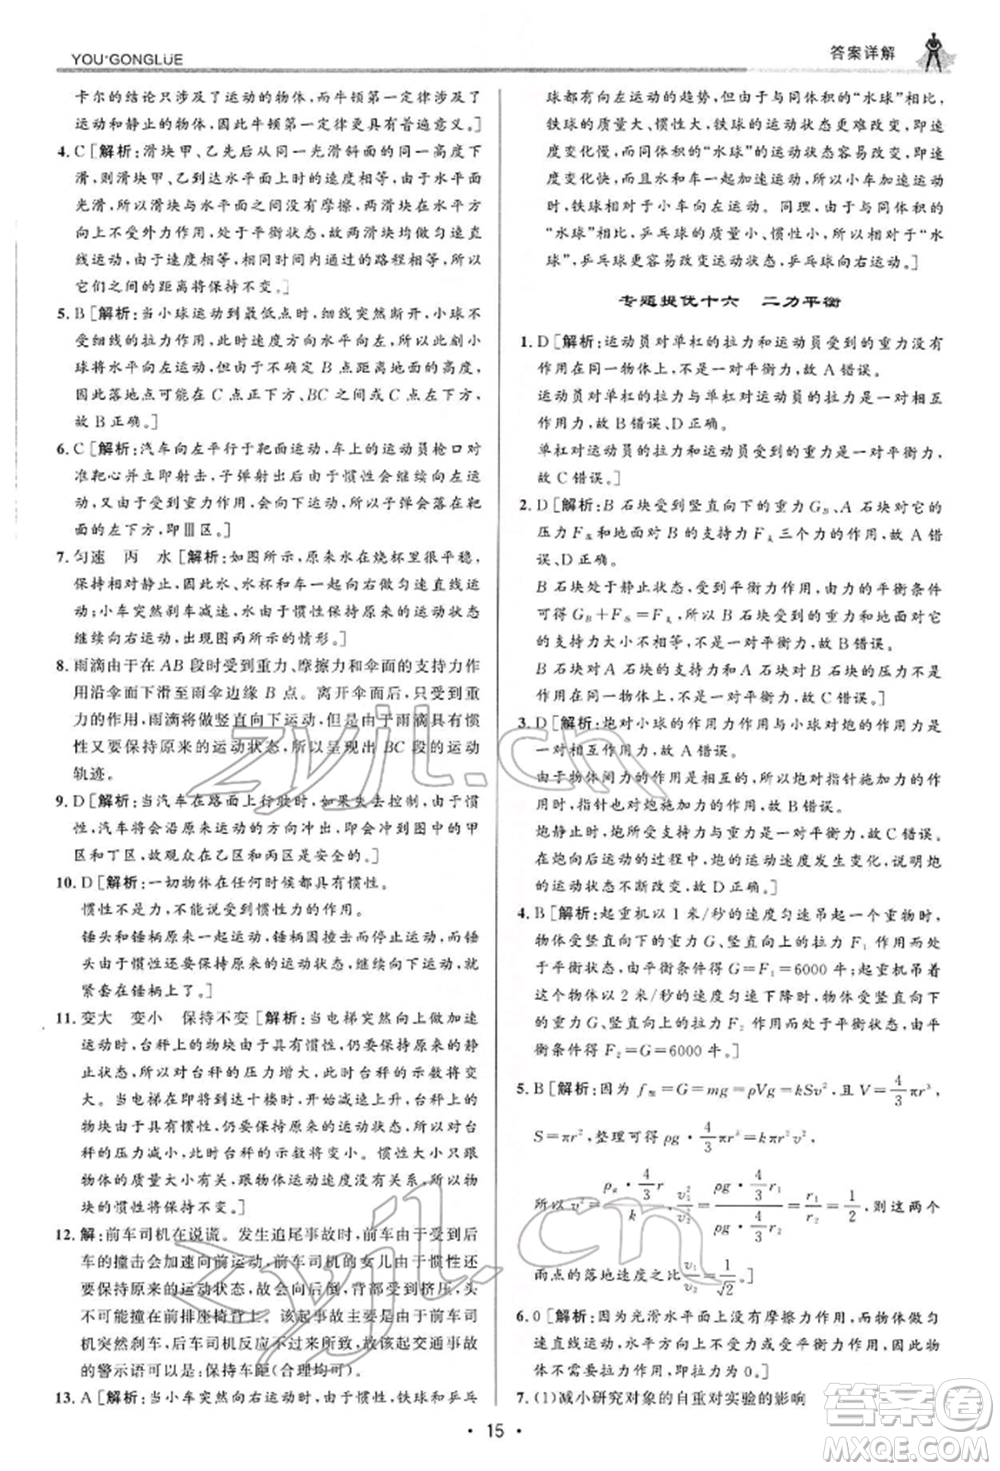 YOU·GONGLÜE
答案详解
卡尔的结论只涉及了运动的物体,而牛顿第一定律涉及了
运动和静止的物体,因此牛顿第一定律更具有普遍意义。]
4. C [解析:滑块甲、乙先后从同一光滑斜面的同一高度滑
下时,滑块甲、乙到达水平面上时的速度相等,由于水平面
光滑,所以滑块与水平面间没有摩擦,两滑块在水平方向
上不受外力作用,处于平衡状态,故两滑块均做匀速直线
运动,由于速度相等,相同的时间内通过的路程相等,所以
它们之间的距离将保持不变。]
5. B [解析:当小球运动到最低点时细线突然断开,小球不
受细线的拉力作用,此时速度方向水平向左,由于惯性,小
球将水平向左运动,但由于不确定 B 点距离地面的高度,
因此落地点可能在 C 点正下方、C 点左下方或 C 点右下方,
故 B 正确。]
6. C [解析:汽车向左平行于靶面运动,车上的运动员枪口对
准靶心并立即射击,子弹射出后由于惯性会继续向左运
动,同时由于受到重力作用,会向下运动,所以子弹会落在靶
面的左下方,即Ⅲ区。]
7. 匀速 丙 水 [解析:如图所示,原来水在烧杯里很平静,
保持相对静止,因此水、水杯和车一起向右做匀速直线运
动;小车突然刹车减速,水由于惯性保持原来的运动状态
继续向右运动,出现图丙所示的情形。]
8. 雨滴由于在 AB 段时受到重力、摩擦力和伞面的支持力作
用沿伞面下滑至雨伞边缘 B 点。离开伞面后,由于只受重
力的作用,雨滴将做竖直向下运动,但是由于雨滴具有惯
性又要保持原来的运动状态,所以呈现出 BC 段的运动
轨迹。
9. D [解析:当汽车在路面上行驶时,如果失去控制,由于惯
性,汽车将会沿原来运动的方向冲出,会冲向图中的甲
区和丁区,故人站在乙区和丙区是安全的。]
10. D [解析:一切物体在任何时候都具有惯性。
惯性不是力,不能说受到惯性力的作用。
锤头和锤柄原来一起运动,锤柄因撞击而突然停止,锤
头由于惯性还要保持原来的运动状态,继续向下运动,就
紧套在锤柄上了。]
11. 变大 变小 保持不变 [解析:当电梯突然向上做加速
运动时,台秤上的物块由于具有惯性,仍要保持原来的静
止状态,所以物块对台秤的压力增大,台秤的示数将变
大。当电梯快要到达十楼时,物块由于惯性保持原来的
运动状态,仍要保持原来较快的速度向上运动,所以台秤
受到的压力变小,台秤的示数将变小。惯性的大小只跟
物体的质量有关,跟物体的运动速度没有关系,所以物
块的惯性始终保持不变。]
12. 解:前车司机在说谎。发生追尾事故时,前车因受到后
车的撞击会加速向前运动,前车司机的女儿由于惯性还
要保持原来的运动状态,所以她的后背部会被挤压,而不
可能撞在前排座椅背上。该起事故主要是由于前车司
机突然刹车,后车司机反应不及时所致,故该起交通事故
的警示语可以是:保持车距(合理均可)。
13. A [解析:当小车突然向右运动时,由于惯性,铁球和乒乓
球都有向左运动的趋势,但由于与同体积的“水球”相比,
铁球的质量大、惯性大,铁球的运动状态更难改变,即速
度变化慢,而同体积的“水球”的运动状态容易改变,即速
度变化快,而且水和车一起加速运动,所以小车向右运动
时,铁球相对于小车向左运动。同理,由于与同体积的
“水球”相比,乒乓球的质量小、惯性小,所以相对于“水
球”,乒乓球更易改变运动状态,乒乓球向右运动。]
专题提优十六 二力平衡
1. D [解析:运动员对单杠的拉力和运动员受到的重力没有
作用在同一物体上,不是一对平衡力,故 A 错误。
运动员对单杠的拉力与单杠对运动员的拉力是一对相互
作用力,故 B 错误、D 正确。
单杠对运动员的拉力和单杠受到的重力没有作用在同一
个物体上,不是一对平衡力,故 C 错误。]
2. D [解析:B 石块受到竖直向下的重力 G_B、A 石块对它的
压力 F压和地面对 B 的支持力 F支三个力的作用,故 C 错
误、D 正确。
B 石块处于静止状态,受到平衡力作用,由力的平衡条件
可得 G_B+F压=F支,所以 B 石块受到的重力和地面对它
的支持力大小不相等,不是一对平衡力,故 B 错误。
B 石块对 A 石块的支持力和 A 石块对 B 石块的压力没有
作用在同一物体上,不是一对平衡力,故 A 错误。]
3. D [解析:炮对小球的作用力作用与小球对炮的作用力是
一对相互作用力,故 A 错误。
由于物体间力的作用是相互的,当炮对指针施加力的作用
时,指针也对炮施加力的作用,故 B 错误。
炮静止时,炮所受支持力与重力是一对平衡力,故 C 错误。
在炮向后运动的过程中,运动速度发生变化,说明炮的
运动状态不断改变,故 D 正确。]
4. B [解析:起重机以 1 米/秒的速度匀速吊起一个重物时,
物体受竖直向下的重力 G、竖直向上的拉力 F₁ 的作用而处
于平衡状态,由平衡条件得 G=F₁=6000 牛;
物体以 2 米/秒的速度匀速下降时,物体受竖直向下的
重力 G、竖直向上的拉力 F₂ 作用而处于平衡状态,由平
衡条件得 F₂=G=6000 牛。]
5. B [解析:因为 f阻=G=mg=ρVg=kSv²,且 V=4/3πr³,
S=πr²,整理可得 ρg·4/3πr³=kπr²v²,
所以 v₁²/v₂²=(ρg·4/3r₁)/(ρg·4/3r₂)=r₁/r₂=1/2,则这两个
雨点的落地速度之比 v₁/v₂=1/√2。]
6. 0 [解析:因为光滑水平面上没有摩擦力作用,而物体做匀
速直线运动,水平方向上不受力或受平衡力,没有摩擦力,
所以不需要拉力作用,即拉力为 0。]
7. (1)减小研究对象的自重对实验的影响
• 15 •
zyjl.cn
zyjl.cn
答案圈
MXQE.COM